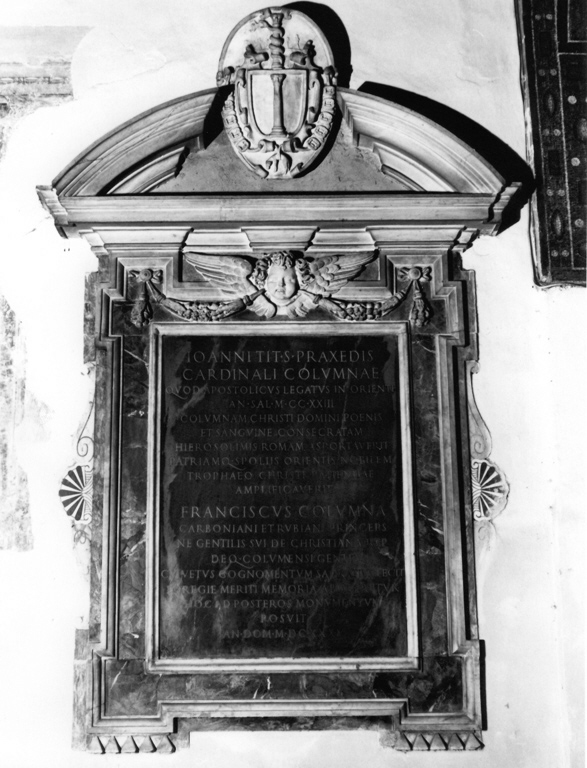 IOANNI TIT·S·PRAXEDIS
CARDINALI COLVMNAE
QVOD APOSTOLICVS LEGATVS IN ORIENTE
AN·SAL·M·CC·XXIII
COLVMNAM, CHRISTI DOMINI POENIS
ET SANGVINE CONSECRATAM
HIEROSOLIMIS ROMAM ASPORTAVERIT
PATRIAMQ SPOLIIS ORIENTIS
TROPHAEO CHRISTI
AMPLIFICAVERIT
FRANCISCVS COLVMNA
CARBONIANI ET RVBIANI PRINCEPS
NE GENTILIS SVI DE CHRISTIANA
DEQ COLVMNENSI GENTE
COGNOMENTVM
EGREGIE MERITI MEMORIA
HOC AD POSTEROS MONVMENTVM
POSVIT